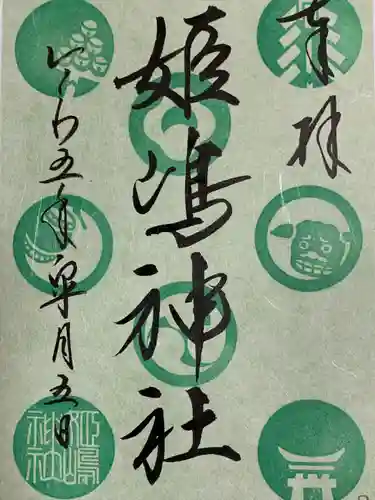 奉拝
姫嶋神社
令和五年皐月五日
姫嶋神社